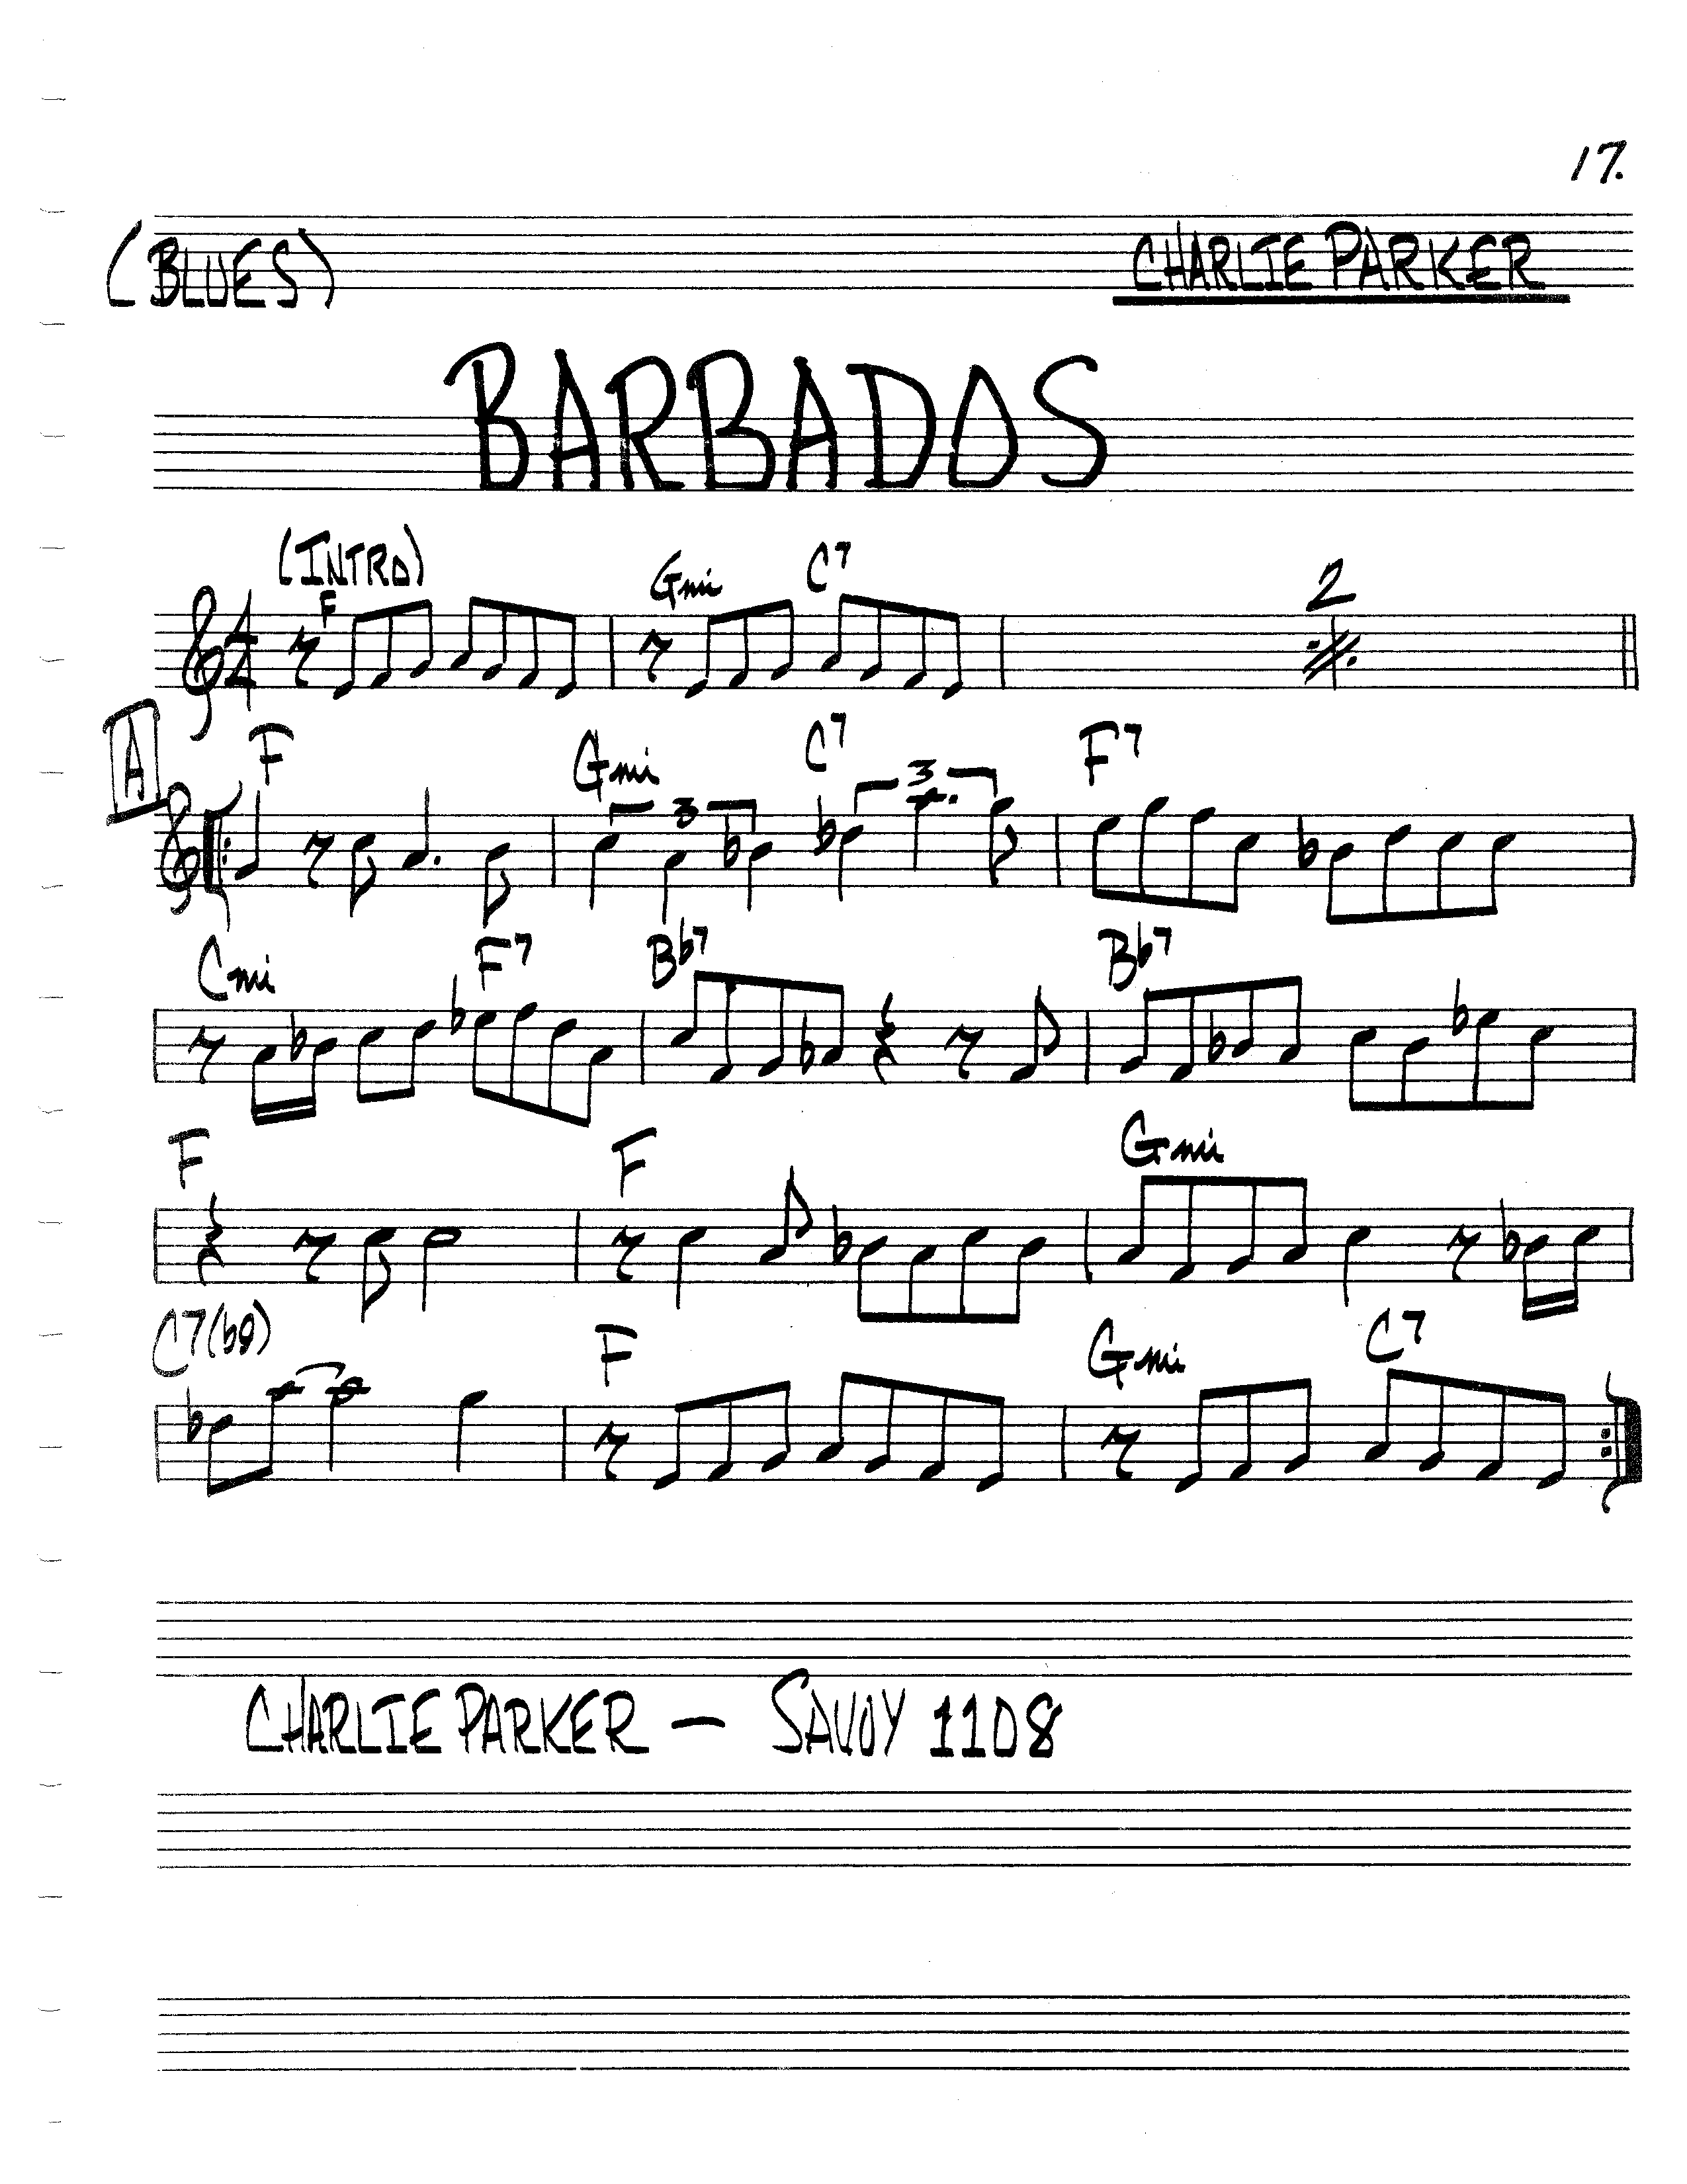 17.
(BLUES) CHARLIE PARKER
BARBADOS
(INTRO)
F Gmi C7 2
A
F Gmi C7 F7
3 3
Cmi F7 Bb7 Bb7
F F Gmi
C7(b9) F Gmi C7
CHARLIE PARKER — SAVOY 1108